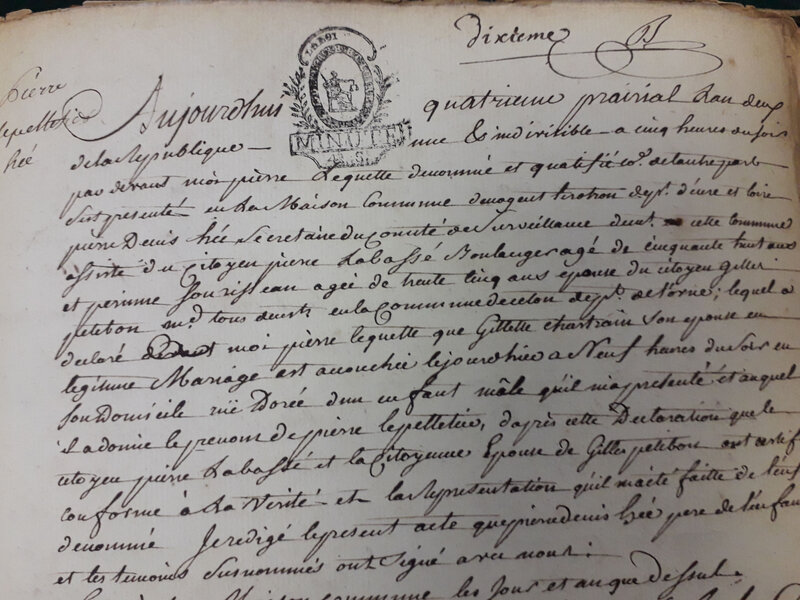 dixieme
Pierre
lepelletie
hée
LA LOI
MINUTE
Aujourdhui quatrieme prairial L'an deux
de la Republique une & indivisible a cinq heures du soir
par devant moi pierre Lequette denommé et qualifié co.e de l'autre part
s'est presenté en La Maison Commune de nogent dep.t d'eure et loire
pierre Denis hée Secretaire du Comité de Surveillance de cette Commune
assisté du Citoyen pierre Labassé Boulanger agé de cinquante huit ans
et perinne Sourisseau agée de trente cinq ans epouse du citoyen Gilles
petibon m.d tous deux en la Commune de dep.t de l'orne; lequel a
declaré a moi pierre lequette que Gillette chartrain Son epouse en
legitime Mariage est accouchée le jourdhier a Neuf heures du Soir en
son Domicile rüe Dorée d'un enfant mâle qu'il m'a presenté et auquel
il a donné le prenom de pierre lepelletie, d'après cette Declaration que le
citoyen pierre Labassé et la Citoyenne Epouse de Gilles petibon ont certif
conforme à La Verité et la Representation qu'il m'a eté faitte de l'enf
denommé Je redigé le present acte que pierre denis hée pere de l'enfan
et les temoins Susnommés ont Signé avec nous:
Maison commune les Jour et an que dessus.